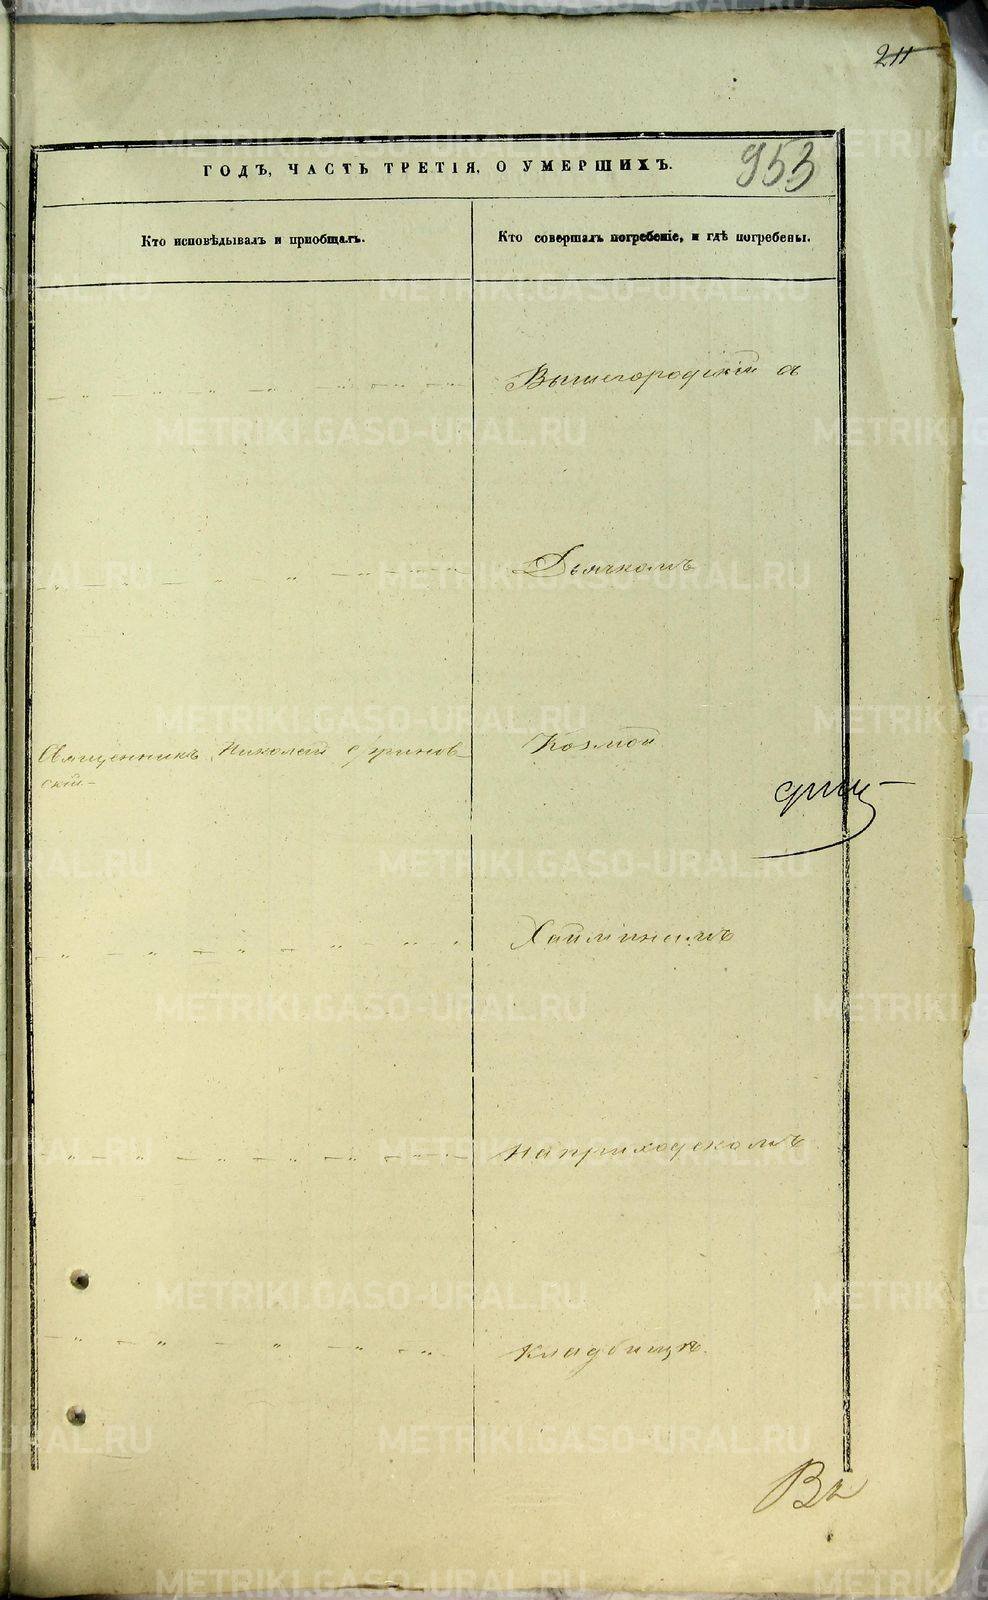 211
953
ГОДЪ, ЧАСТЬ ТРЕТІЯ, О УМЕРШИХЪ.
Кто исповѣдывалъ и пріобщалъ.
Кто совершалъ погребеніе, и гдѣ погребены.
Вышегородскій съ
Дьячкомъ
Священникъ Николай
скій
Козмой
Наприходскомъ
кладбищѣ.
METRIKI.GASO-URAL.RU